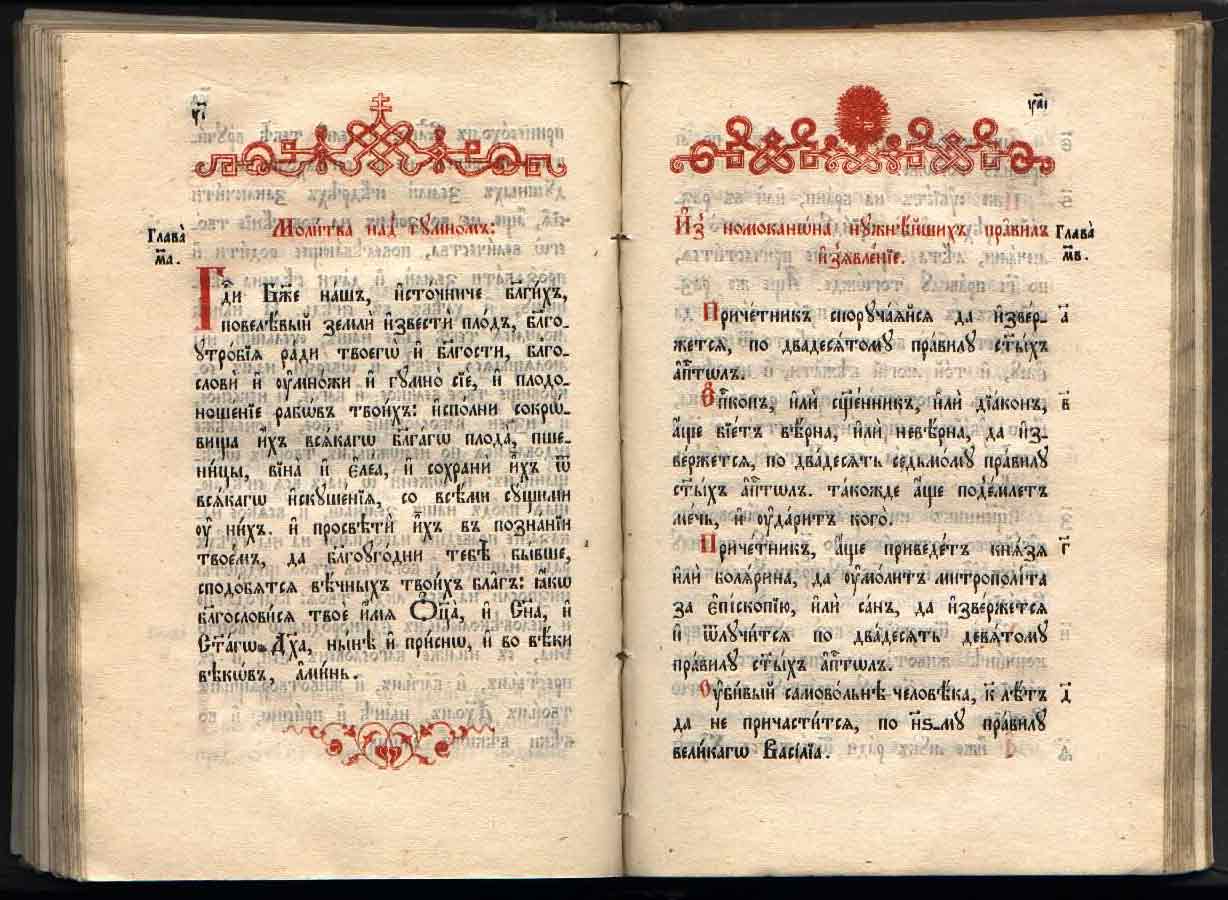 Глава̀
м҃а.
Моли́тва над̾ гꙋмно́мъ:
Гдⷭ҇и Бж҃е нашъ, и҆сто́чниче бл҃ги́хъ,
повелѣ́вый землѝ и҆звестѝ пло́дъ, бл҃го-
ꙋтро́бїѧ ра́ди твоегѡ̀ и҆ бл҃гости, бл҃го-
словѝ и҆ ѹ҆мно́жи и҆ гꙋмно̀ сїѐ, и҆ плодо-
ноше́нїе рабѡ́въ твои́хъ: и҆спо́лни сокрѡ́-
вища и҆́хъ всѧ́кагѡ бл҃га́гѡ плода̀, пше-
ни́цы, вїна̀ и҆ є҆ле́а, и҆ сохранѝ и҆́хъ ѿ
всѧ́кагѡ и҆скꙋше́нїѧ, со всѣ́ми сꙋ́щими
ѹ҆ ни́хъ. и҆ просвѣтѝ и҆́хъ въ позна́нїи
твое́мъ, да бл҃гоꙋго́дни тебѣ̀ бы́вше,
сподо́бѧтсѧ вѣ́чныхъ твои́хъ бл҃гъ: ꙗ҆́кѡ
бл҃гослови́сѧ твоѐ и҆́мѧ Ѻ҆ц҃а̀, и҆ Сн҃а, и҆
Ст҃а́гѡ Дх҃а, ны́нѣ и҆ при́снѡ, и҆ во вѣ́ки
вѣкѡ́въ, а҆ми́нь.
Глава̀
м҃в.
И҆з̾ номокано́на нꙋжнѣ́йшихъ пра́вилъ
и҆з̾ѧвле́нїе.
Приче́тникъ спорꙋча́ѧйсѧ да и҆зве́р-
жетсѧ, по двадесѧ́томꙋ пра́вилꙋ ст҃ы́хъ
а҆пⷭ҇тлъ.
а҃
Е҆п҃копъ, и҆лѝ сщ҃е́нникъ, и҆лѝ дїа́конъ,
а҆́ще бїе́тъ вѣ́рна, и҆лѝ невѣ́рна, да и҆з-
ве́ржетсѧ, по два́десѧть седьмо́мꙋ пра́вилꙋ
ст҃ы́хъ а҆пⷭ҇тлъ. та́кожде а҆́ще под̾е́млетъ
ме́чь, и҆ ѹ҆да́ритъ кого̀.
в҃
Приче́тникъ, а҆́ще приведе́тъ кнѧ́зѧ
и҆лѝ болѧ́рина, да ѹ҆мо́литъ митрополі́та
за є҆пі́скопїю, и҆лѝ са́нъ, да и҆зве́ржетсѧ
и҆ ѿлꙋчи́тсѧ по два́десѧть девѧ́томꙋ
пра́вилꙋ ст҃ы́хъ а҆пⷭ҇тлъ.
г҃
Ѹ҆би́вый самово́льнѣ человѣ́ка, к҃ лѣ́тъ
да не причасти́тсѧ, по н҃ѕ-мꙋ пра́вилꙋ
вели́кагѡ Васі́лїа.
д҃